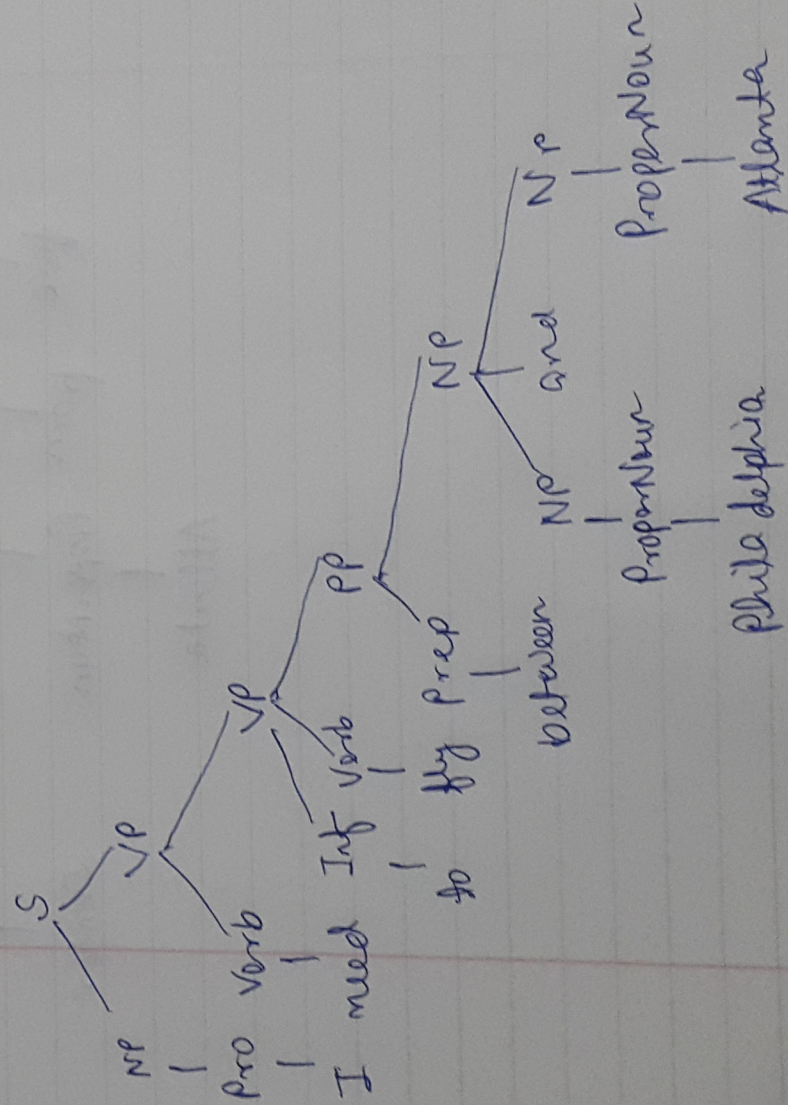 S
NP VP
Pro Verb VP
I need Inf Verb PP
to fly Prep NP
between NP and NP
ProperNoun ProperNoun
Philadelphia Atlanta